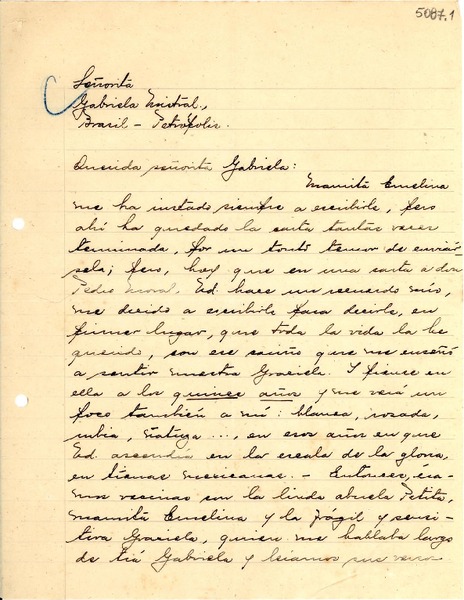 5087.1
Señorita
Gabriela Mistral.,
Brasil - Petrópolis.
Querida señorita Gabriela:
Mamita Emelina
me ha instado siempre a escribirle, pero
ahí ha quedado la carta tantas veces
terminada, por un tonto temor de enviár-
sela; pero, hoy que en una carta a don
Pedro Moral, Ud. hace un recuerdo mío,
me decido a escribirle para decirle, en
primer lugar, que toda la vida la he
querido, con ese cariño que me enseñó
a sentir nuestra Graciela. I piense en
ella a los quince años y me verá un
poco también a mí: blanca, rosada,
rubia, ñatiga ..., en esos años en que
Ud. ascendía en la escala de la gloria,
en tierras mexicanas. - Entonces, éra-
mos vecinas con la linda abuela Petita,
mamita Emelina y la frágil y sensi-
tiva Graciela, quien me hablaba largo
de tía Gabriela y leíamos sus